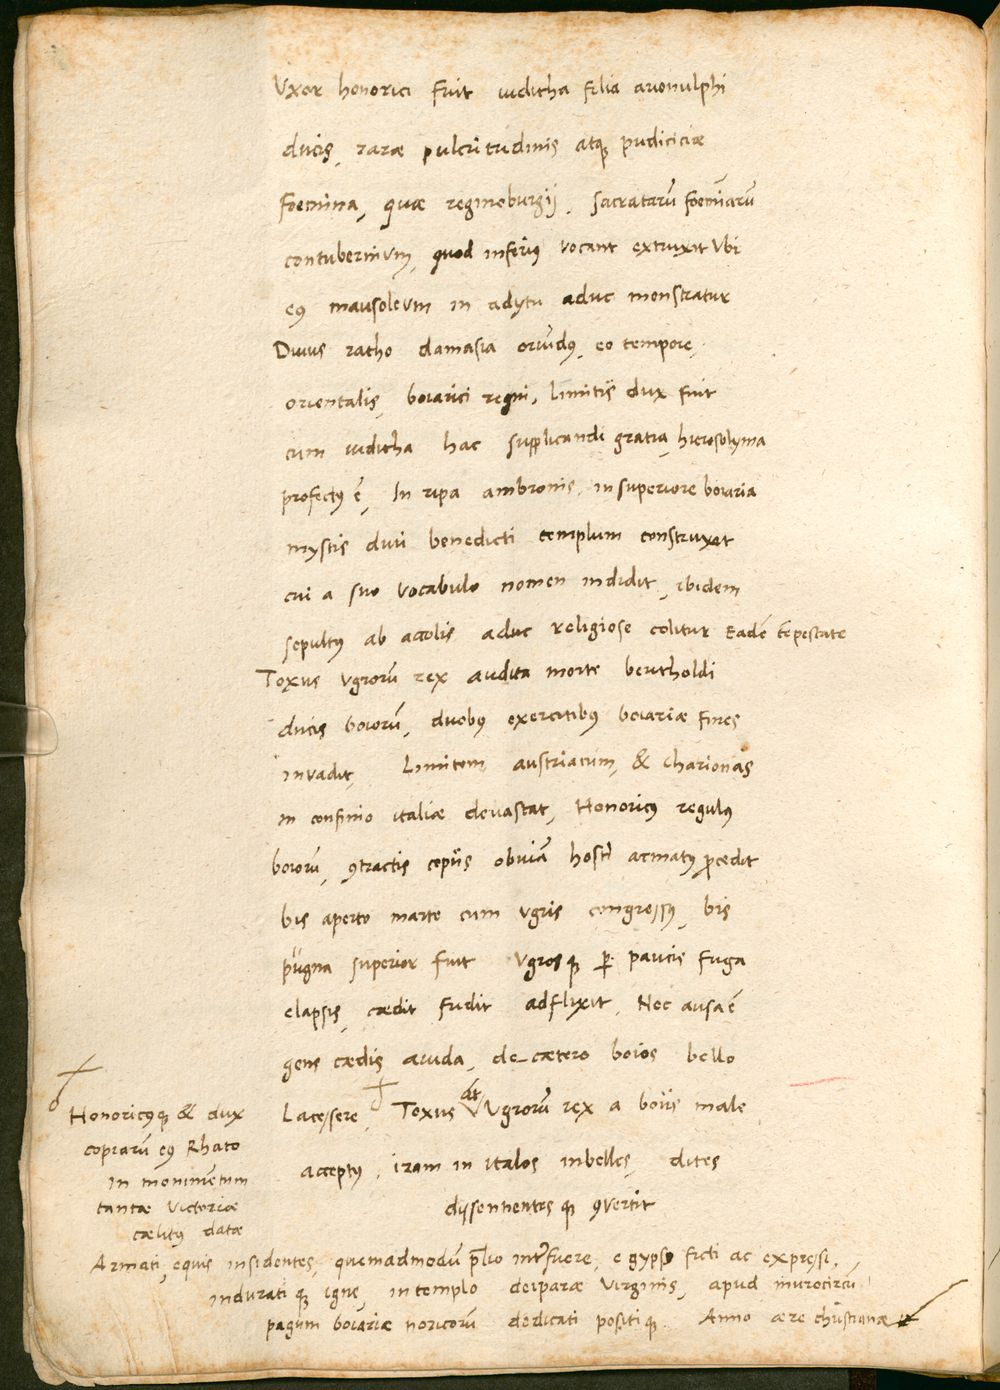 Vxor honorici fuit iuditha filia arionulphi
ducis, raræ pulcritudinis atq; pudiciciæ
foemina, quæ reginoburgij, sacratarũ foemĩarũ
contubernium, quod inferius vocant extruxit Vbi
eius mausoleum in adytu aduc monstratur
Diuus ratho damasia oriũdus, eo tempore,
orientalis, boiarici regni, limitis dux fuit
cum iuditha hac supplicandi gratia, hierosolyma
profectus ẽ, In ripa ambronis, in superiore boiaria
mystis diui benedicti templum construxit
cui a suo vocabulo nomen indidit, ibidem
sepultus ab accolis aduc religiose colitur Eadẽ tẽpestate
Toxus vgrorũ rex audita morte bertholdi
ducis boiorũ, duobus exercitibus boiariæ fines
inuadit, Limitem austriacum, & Charionas
in confinio italiæ deuastat, Honoricus regulus
boiorũ, 9tractis copiis obuiã hosti armatus p̃cedit
bis aperto marte cum vgris congressus, bis
pugna superior fuit Vgrosq; p paucis fuga
elapsis, cædit fudit adflixit, Nec ausa ẽ
gens cædis auida, de cætero boios bello
Lacessere, Toxus at Vgrorũ rex a boiis male
acceptus, iram in italos inbelles, dites
dissentientesq; 9vertit
Honoricusq; & dux
copiarũ eius Rhato
in monimentum
tantæ victoriæ
cælitus datæ
Armati, equis insidentes, quemadmodũ p̃lio interfuere, e gypso ficti ac expressi,
induratiq; igne, in templo deiparæ Virginis, apud murocircũ
pagum boiariæ noricorum dedicati positiq; Anno ære christianæ